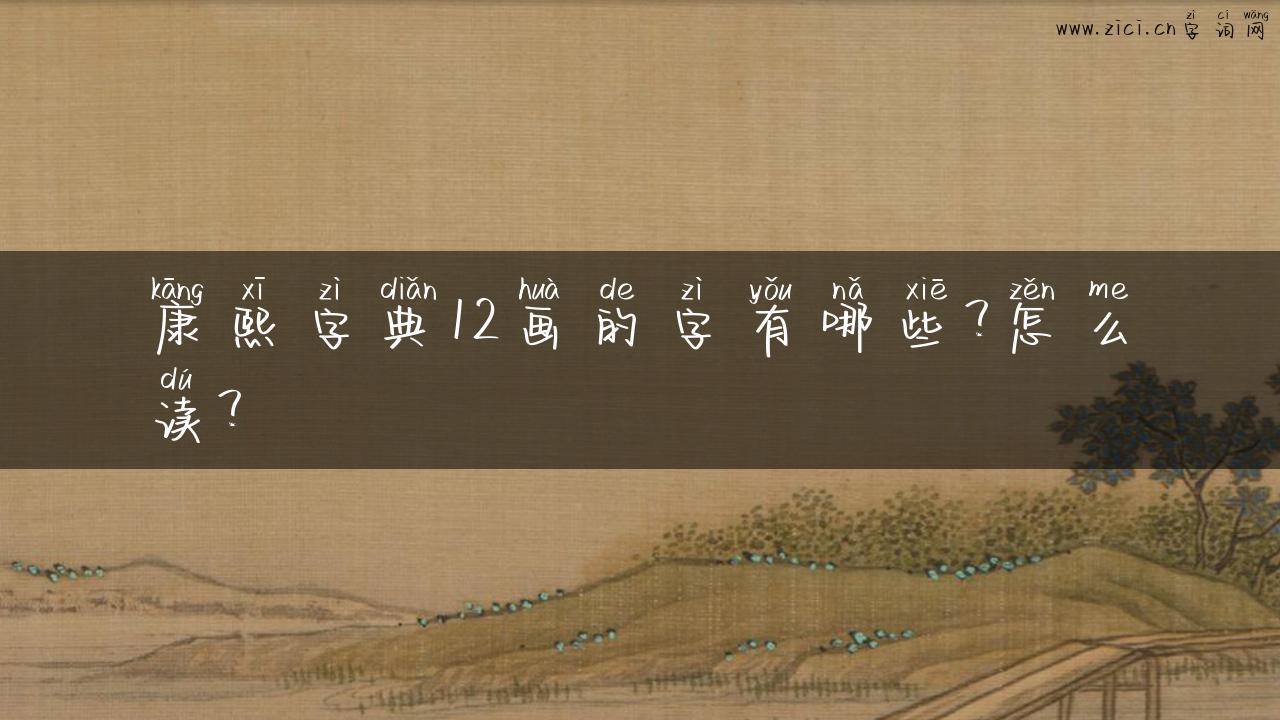 zì cí wǎng
www.zici.cn字词网
kāng xī zì diǎn huà de zì yǒu nǎ xiē zěn me
康熙字典12画的字有哪些?怎么
dú
读?